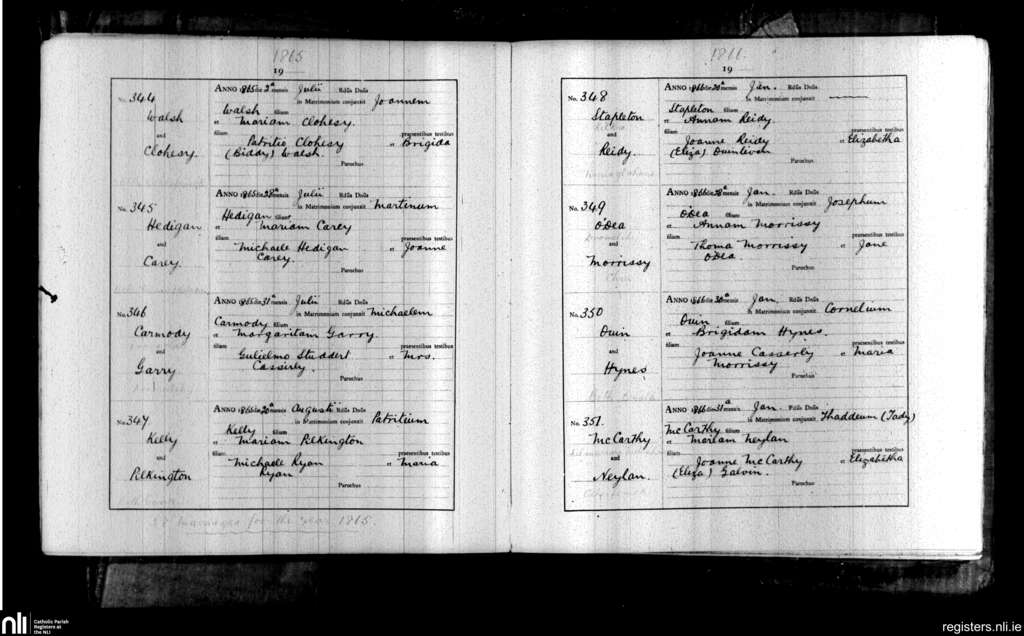 1865
19
No. 344
Walsh
and
Clohesy.
ANNO 1865 die 2ª mensis Julii Rdus Dnus
in Matrimonium conjunxit Joannem
Walsh filium
et Mariam Clohesy.
filiam praesentibus testibus
Patritio Clohesy et Brigida
(Biddy) Walsh.
Parochus
No. 345
Hedigan
and
Carey.
ANNO 1865 die 29ª mensis Julii Rdus Dnus
in Matrimonium conjunxit Martinum
Hedigan filium
et Mariam Carey
filiam praesentibus testibus
Michaele Hedigan et Joanne
Carey.
Parochus
No. 346
Carmody
and
Garry
ANNO 1865 die 31ª mensis Julii Rdus Dnus
in Matrimonium conjunxit Michaelem
Carmody filium
et Margaritam Garry.
filiam praesentibus testibus
Gulielmo Studdert et Mrs.
Casserly.
Parochus
No. 347
Kelly
and
Pilkington
ANNO 1865 die 20ª mensis Augusti Rdus Dnus
in Matrimonium conjunxit Patritium
Kelly filium
et Mariam Pilkington
filiam praesentibus testibus
Michaele Ryan et Maria
Ryan
Parochus
marriages for the year 1865.
1866.
19
No. 348
Stapleton
and
Reidy.
ANNO 1866 die 20ª mensis Jan. Rdus Dnus
in Matrimonium conjunxit
Stapleton filium
et Annam Reidy.
filiam praesentibus testibus
Joanne Reidy et Elizabetha
(Eliza) Quinlivan
Parochus
No. 349
O'Dea
and
Morrissy
ANNO 1866 die 28ª mensis Jan. Rdus Dnus
in Matrimonium conjunxit Josephum
O'Dea filium
et Annam Morrissy
filiam praesentibus testibus
Thoma Morrissy et Jane
O'Dea.
Parochus
No. 350
Quin
and
Hynes
ANNO 1866 die 30ª mensis Jan. Rdus Dnus
in Matrimonium conjunxit Cornelium
Quin filium
et Brigidam Hynes.
filiam praesentibus testibus
Joanne Casserly et Maria
Morrissy
Parochus
No. 351.
McCarthy
and
Neylan.
ANNO 1866 die 31ª mensis Jan. Rdus Dnus
in Matrimonium conjunxit Thaddeum (Tady)
McCarthy filium
et Mariam Neylan
filiam praesentibus testibus
Joanne McCarthy et Elizabetha
(Eliza) Galvin.
Parochus
nli Catholic Parish
Registers at
the NLI
registers.nli.ie